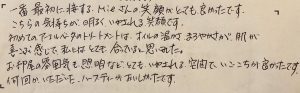 一番最初に接する、Miaさんの笑顔がとても良かったです。
こちらの気持ちが明るくいやされる笑顔です。
初めてのアーユルベーダのトリートメントは、オイルの温かさ、まろやかさが、肌が
喜ぶ感じで、私にはとても合ってると思いました。
お部屋の雰囲気も照明などとてもいやされる空間で、いごこちが良かったです。
何回かいただいた、ハーブティーがおいしかったです。